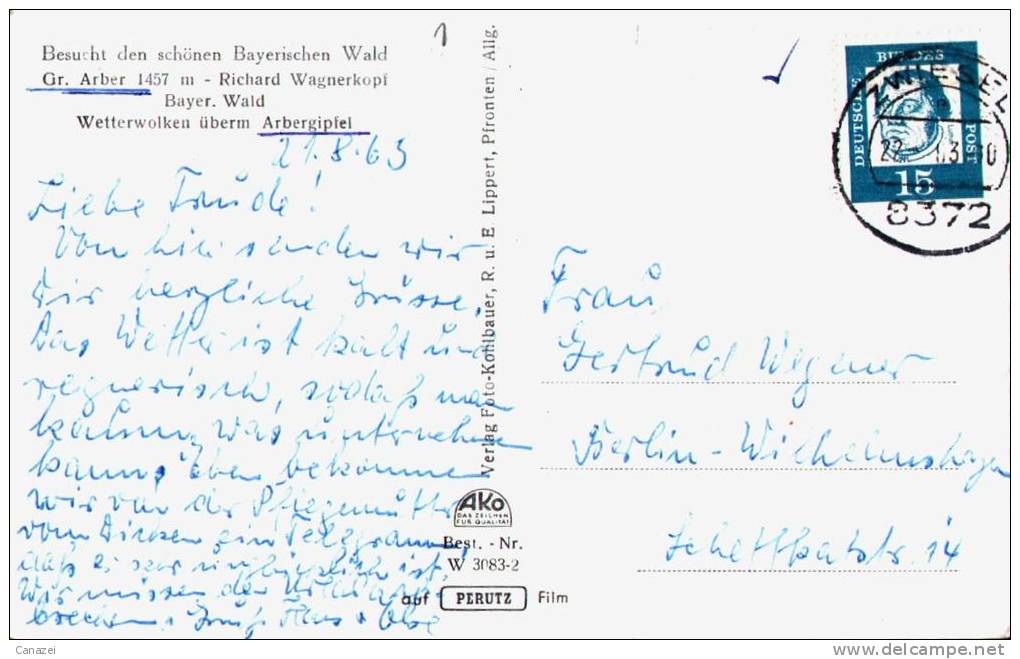 Besucht den schönen Bayerischen Wald
Gr. Arber 1457 m - Richard Wagnerkopf
Bayer. Wald
Wetterwolken überm Arbergipfel
21.8.63
Liebe Trude!
Von hier senden wir
Dir herzliche Grüsse.
Das Wetter ist kalt und
regnerisch, sodaß man
kaum was unternehmen
kann. Eben bekommen
wir von der Pflegemutter
vom Dicken ein Telegramm,
daß er sehr unglücklich ist.
Wir müssen den Urlaub
Gruß Hans
Verlag Foto-Kohlbauer, R. u. E. Lippert, Pfronten / Allg.
AKo
DAS ZEICHEN
FÜR QUALITÄT
Best. - Nr.
W 3083-2
auf PERUTZ Film
1
DEUTSCHE BUNDESPOST
15
ZWIESEL
22
8372
Frau
Gertrud Wegener
Berlin-Wilhelmshagen
14
Canazei
www.delcampe.net